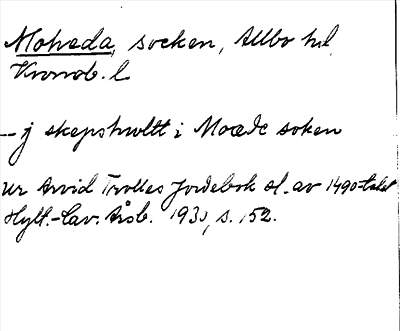 Moheda, socken, Allbo hd
Kronob. l
– j skepshwltt i Moædc soken
ur Arvid Trolles Jordebok sl. av 1490-talet
Hylt.-Cav. Årsb. 193), s. 152.